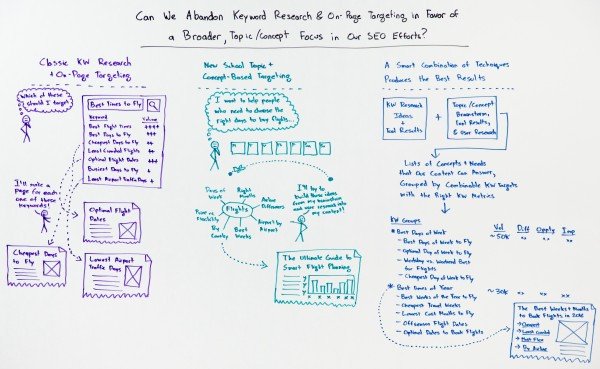 Can We Abandon Keyword Research & On-Page Targeting in Favor of
a Broader, Topic/Concept Focus in Our SEO Efforts?
Classic KW Research
+ On-Page Targeting
Which of these
should I target?
Best Times to Fly
Keyword Volume
Best Flight Times ++++
Best Days to Fly +++
Cheapest Days to Fly ++
Least Crowded Flights ++
Optimal Flight Dates +++
Busiest Days to Fly +
Least Airport Traffic Days +
I'll make a
page for each
one of these
keywords!
Optimal Flight
Dates
Cheapest Days
to Fly
Lowest Airport
Traffic Days
New School Topic +
Concept-Based Targeting
I want to help people
who need to choose the
right days to buy flights.
Flights
Days of
Week
Right
Months
Airline
Differences
By
Airport
Best
Weeks
By
Country
Price vs.
I'll try to
build these ideas
from my brainstorm
and user research into
my content!
The Ultimate Guide to
Smart Flight Planning
A Smart Combination of Techniques
Produces the Best Results
KW Research
Ideas
+
Tool Results
+
Topic/Concept
Brainstorm,
Tool Results,
& User Research
Lists of Concepts + Needs
that Our Content Can Answer,
Grouped by Combinable KW Targets
with the Right KW Metrics
KW Groups Vol Diff Oppty Imp
* Best Days of Week ~50K xx xx xx
- Best Days of Week to Fly
- Optimal Day of Week to Fly
- Weekday vs. Weekend Best
for Flights
- Cheapest Day of Week to Fly
* Best Times of Year ~30K xx xx xx
- Best Weeks of the Year to Fly
- Cheapest Travel Weeks
- Lowest Cost Months to Fly
- Offseason Flight Dates
- Optimal Dates to Book Flights
The Best Weeks + Months
to Book Flights in 2016
→ Cheapest
→ Least Crowded
→ Most Flex
→ By Airline